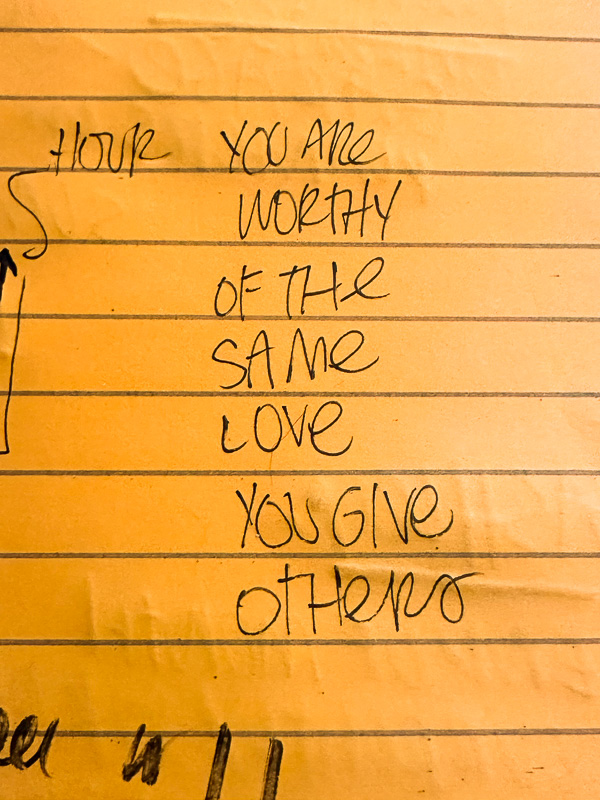 HOUR YOU ARe
WORTHY
OF THe
SAMe
LOVe
YOU GIVe
OTHeRS